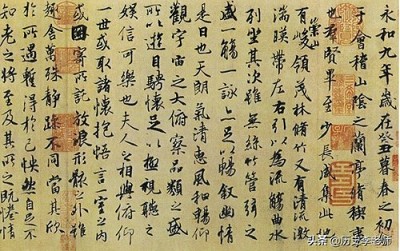 永和九年歲在癸丑暮春之初
于會稽山陰之蘭亭脩稧事
也群賢畢至少長咸集此地
有崇山峻領茂林脩竹又有清流激
湍暎帶左右引以為流觴曲水
列坐其次雖無絲竹管弦之
盛一觴一詠亦足以暢敘幽情
是日也天朗氣清惠風和暢仰
觀宇宙之大俯察品類之盛
所以遊目騁懷足以極視聽之
娛信可樂也夫人之相與俯仰
一世或取諸懷抱悟言一室之內
或因寄所託放浪形骸之外雖
趣舍萬殊靜躁不同當其欣
於所遇暫得於己怏然自足不
知老之將至及其所之既惓情